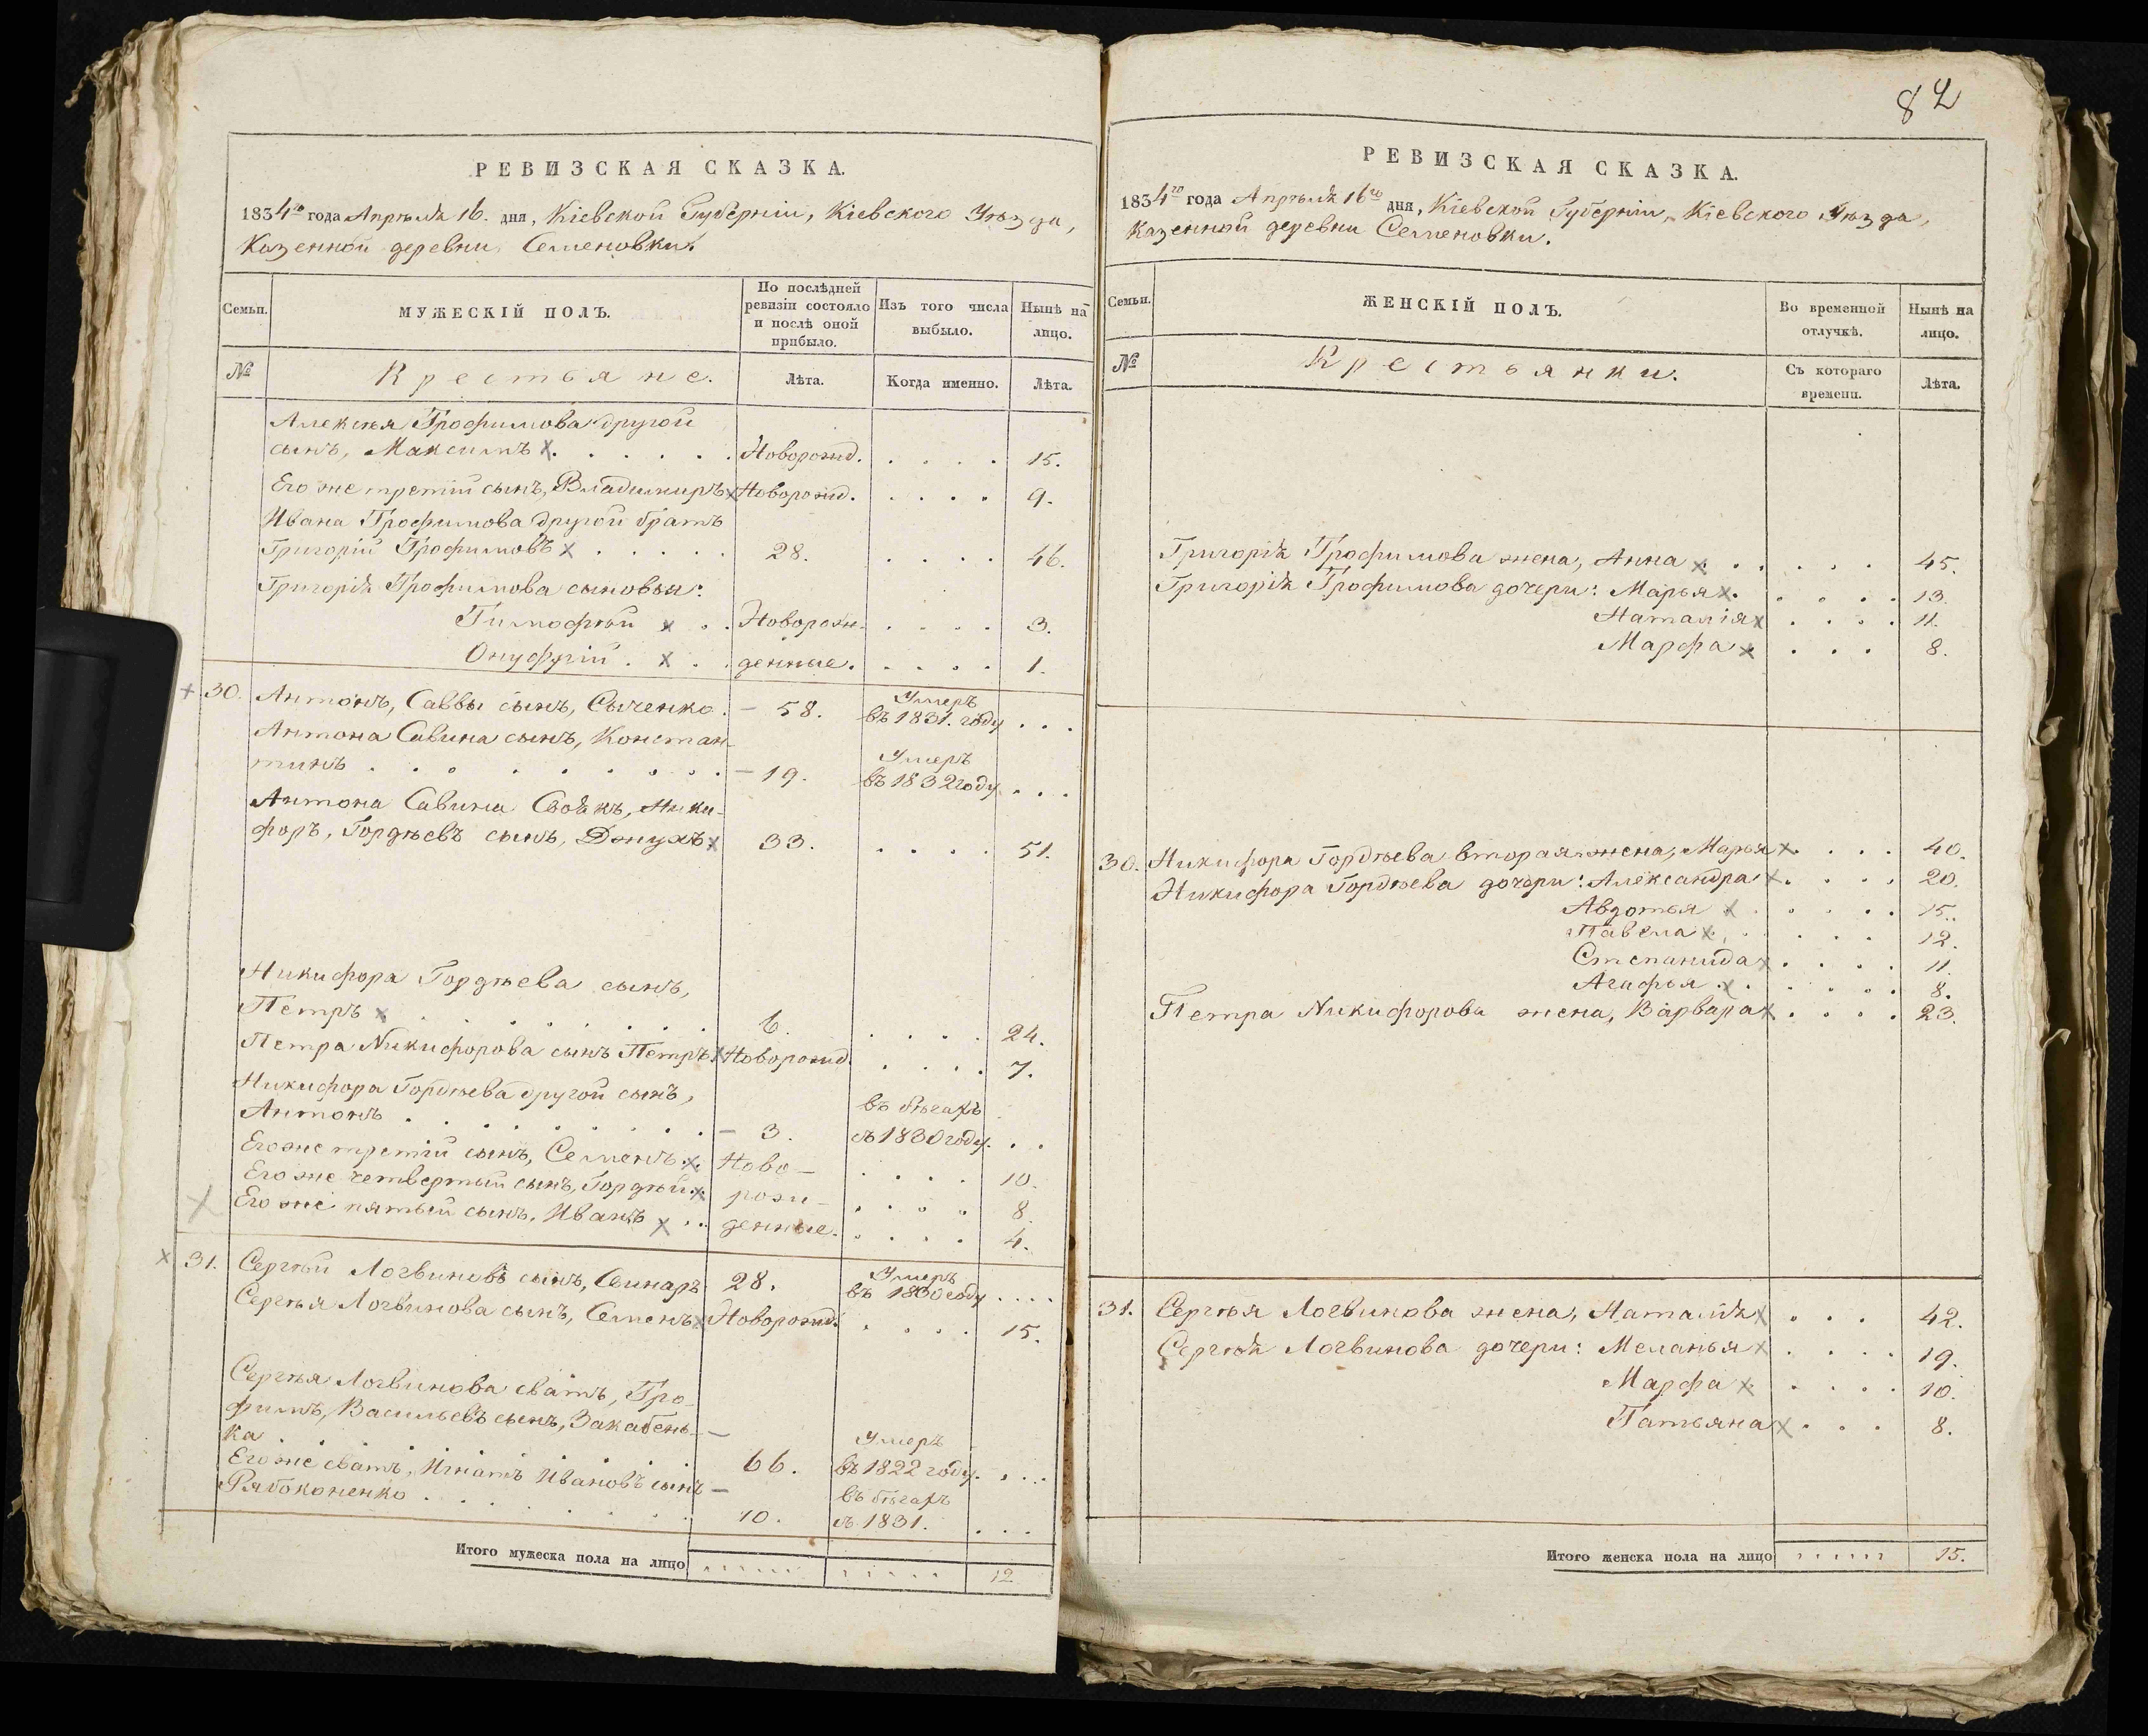 РЕВИЗСКАЯ СКАЗКА.
1834го года Апрѣля 16. дня, Кіевской Губерніи, Кіевского Уѣзда,
Казенной деревни Семеновки.
Семьи.
МУЖЕСКІЙ ПОЛЪ.
По послѣдней ревизіи состояло и послѣ оной прибыло.
Изъ того числа выбыло.
Нынѣ на лицо.
№
Крестьяне.
Лѣта.
Когда именно.
Лѣта.
Алексѣя Трофимова другой
сынъ, Максимъ х. Новорожд. 15.
Его же третій сынъ, Владимиръ х Новорожд. 9.
Ивана Трофимова другой братъ
Григорій Трофимовъ х 28. 46.
Григорія Трофимова сыновья:
Тимофѣй х Новорож- 3.
Онуфрій. х денные. 1.
х 30. Антонъ, Саввы сынъ, Сыченко. — 58. Умеръ въ 1831. году
Антона Савина сынъ, Констан-
тинъ — 19. Умеръ въ 1832 году
Антона Савина Своякъ, Ники-
форъ, Гордѣевъ сынъ, х 33. 51.
Никифора Гордѣева сынъ,
Петръ х 6. 24.
Петра Никифорова сынъ Петръ. х Новорожд. 7.
Никифора Гордѣева другой сынъ,
Антонъ — 3. въ бѣгахъ съ 1830 году.
Его же третій сынъ, Семенъ. х. Ново- 10.
Его же четвертый сынъ, Гордѣй. х рож- 8.
х Его же пятый сынъ, Иванъ х денные. 4.
х 31. Сергѣй Логвиновъ сынъ, 28. Умеръ въ 1830 году
Сергѣя Логвинова сынъ, Семенъ х Новорожд. 15.
Сергѣя Логвинова сватъ, Тро-
фимъ, Васильевъ сынъ, Закабень-
ка — 66. Умеръ въ 1822 году.
Его же сватъ, Игнатъ Ивановъ сынъ —
Рябоконенко 10. въ бѣгахъ съ 1831.
Итого мужеска пола на лицо 12
82
РЕВИЗСКАЯ СКАЗКА.
1834го года Апрѣля 16го дня, Кіевской Губерніи, Кіевского Уѣзда,
Казенной деревни Семеновки.
Семьи.
ЖЕНСКІЙ ПОЛЪ.
Во временной отлучкѣ.
Нынѣ на лицо.
№
Крестьянки.
Съ котораго времени.
Лѣта.
Григорія Трофимова жена, Анна х 45.
Григорія Трофимова дочери: Марья х. 13.
Наталія х 11.
Марфа х 8.
30. Никифора Гордѣева вторая жена, Марья х. 40.
Никифора Гордѣева дочери: Александра х. 20.
Авдотья х 15.
х. 12.
Степанида х. 11.
Агафья. х. 8.
Петра Никифорова жена, Варвара х. 23.
31. Сергѣя Логвинова жена, Наталія х 42.
Сергѣя Логвинова дочери: Меланья х 19.
Марфа х 10.
Татьяна х 8.
Итого женска пола на лицо 15.